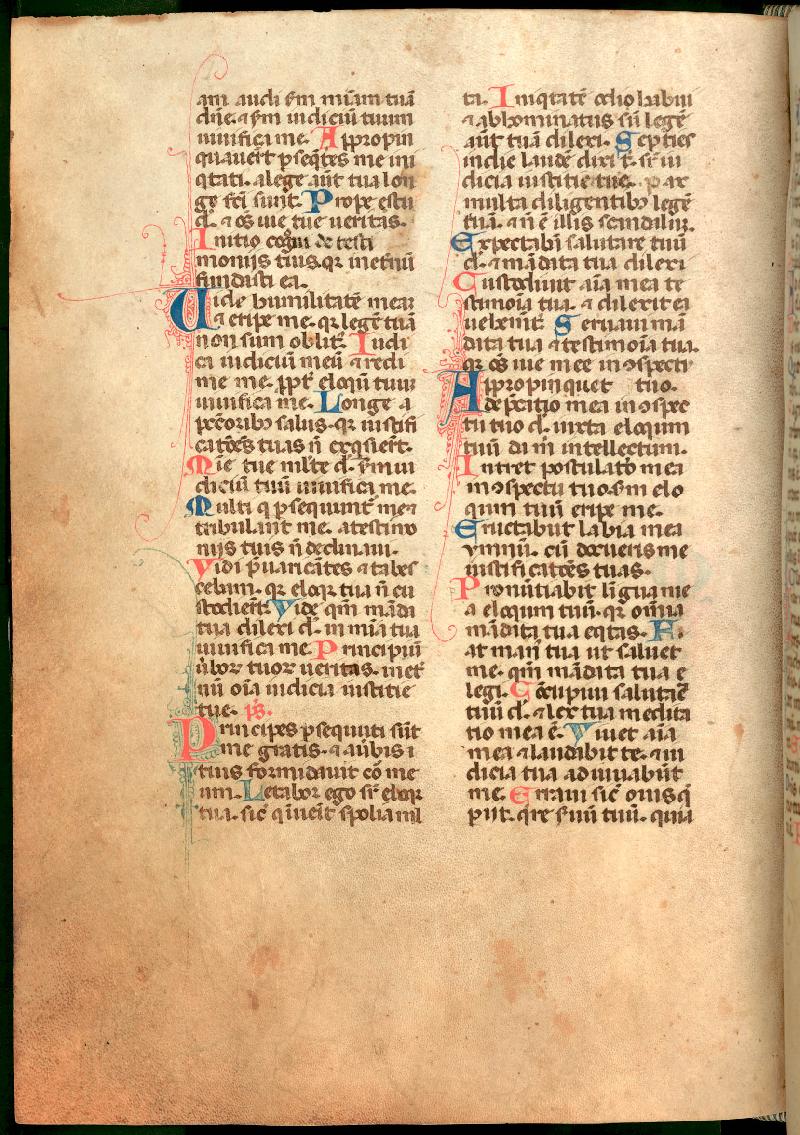 am audi s̄m miam tuā
dn̄e. ⁊ s̄m iudiciū tuum
uiuifica me. Appropin
quauer̄t ꝑseq̄tes me ini
qtati. a lege aūt tua lon
ge fc̄i sunt. Prope es tu
d̄. ⁊ oēs uie tue ueritas.
Initio cogͦui de testi
monijs tuis. qꝛ in et̄nū
fundasti ea.
Uide humilitatē meaꝫ
⁊ eripe me. qꝛ legē tuā
non sum oblit᷒. Iudi
ca iudiciū meū ⁊ redi
me me. ꝓpt̄ eloqū tuū
uiuifica me. Longe a
pccͣoribꝫ salus. qꝛ iustifi
catōes tuas n̄ exq̄sier̄t.
Mīe tue mlt̄e d̄. s̄m iu
diciū tuū uiuifica me.
Multi q̄ ꝑsequnt᷑ me ⁊
tribulant me. a testimo
nijs tuis n̄ declinaui.
Vidi p̄uaricātes ⁊ tabes
cebam. qꝛ eloqꝛ tua n̄ cu
stodier̄t. Vide qm̄ māda
ta tua dilexi d̄. in mīa tua
uiuifica me. Principiū
ūboꝝ tuoꝝ ueritas. in et̄
nū oīa iudicia iustitie
tue. ps.
Principes ꝑsequuti sūt
me gratis. ⁊ a ūbis
tuis formidauit coꝛ me
um. Letabor ego sꝑ eloqꝛ
tua. sic̄ q̄ inueīt spolia ml
ta. Iniqtatē odio habui
⁊ abhominatus sū legē
aūt tuā dilexi. Septies
in die laudē dixi t̄. sꝑ iu
dicia iustitie tue. Pax
multa diligentibꝫ legē
tuā. ⁊ n̄ ē illis scandalū.
Expectabā salutare tuū
d̄. ⁊ mādata tua dilexi
Custodiuit aīa mea te
stimoīa tua. ⁊ dilexit ea
uehem̄t᷑. Seruaui mā
data tua ⁊ testimoīa tua.
qꝛ oēs uie mee in ꝯspectu
Appropinquet tuo.
dep̄catio mea in ꝯspec
tu tuo d̄. iuxta eloquium
tuū da m̄ intellectum.
Intret postulatō mea
in ꝯspectu tuo. s̄m elo
quium tuū eripe me.
Eructabūt labia mea
ymnū. cū docueris me
iustificatōes tuas.
Pronūtiabit lingua me
a eloquium tuū. qꝛ omīa
mādata tua eqtas. Fi
at man᷒ tua ut saluet
me. qm̄ mādata tua e
legi. Cōcupiui salutaē
tuū d̄. ⁊ lex tua medita
tio mea ē. Viuet aīa
mea ⁊ laudabit te. ⁊ iu
dicia tua adiuuabūt
me. Erraui sic̄ ouis q̄
ꝑijt. q̄re s̄uū tuū. quia